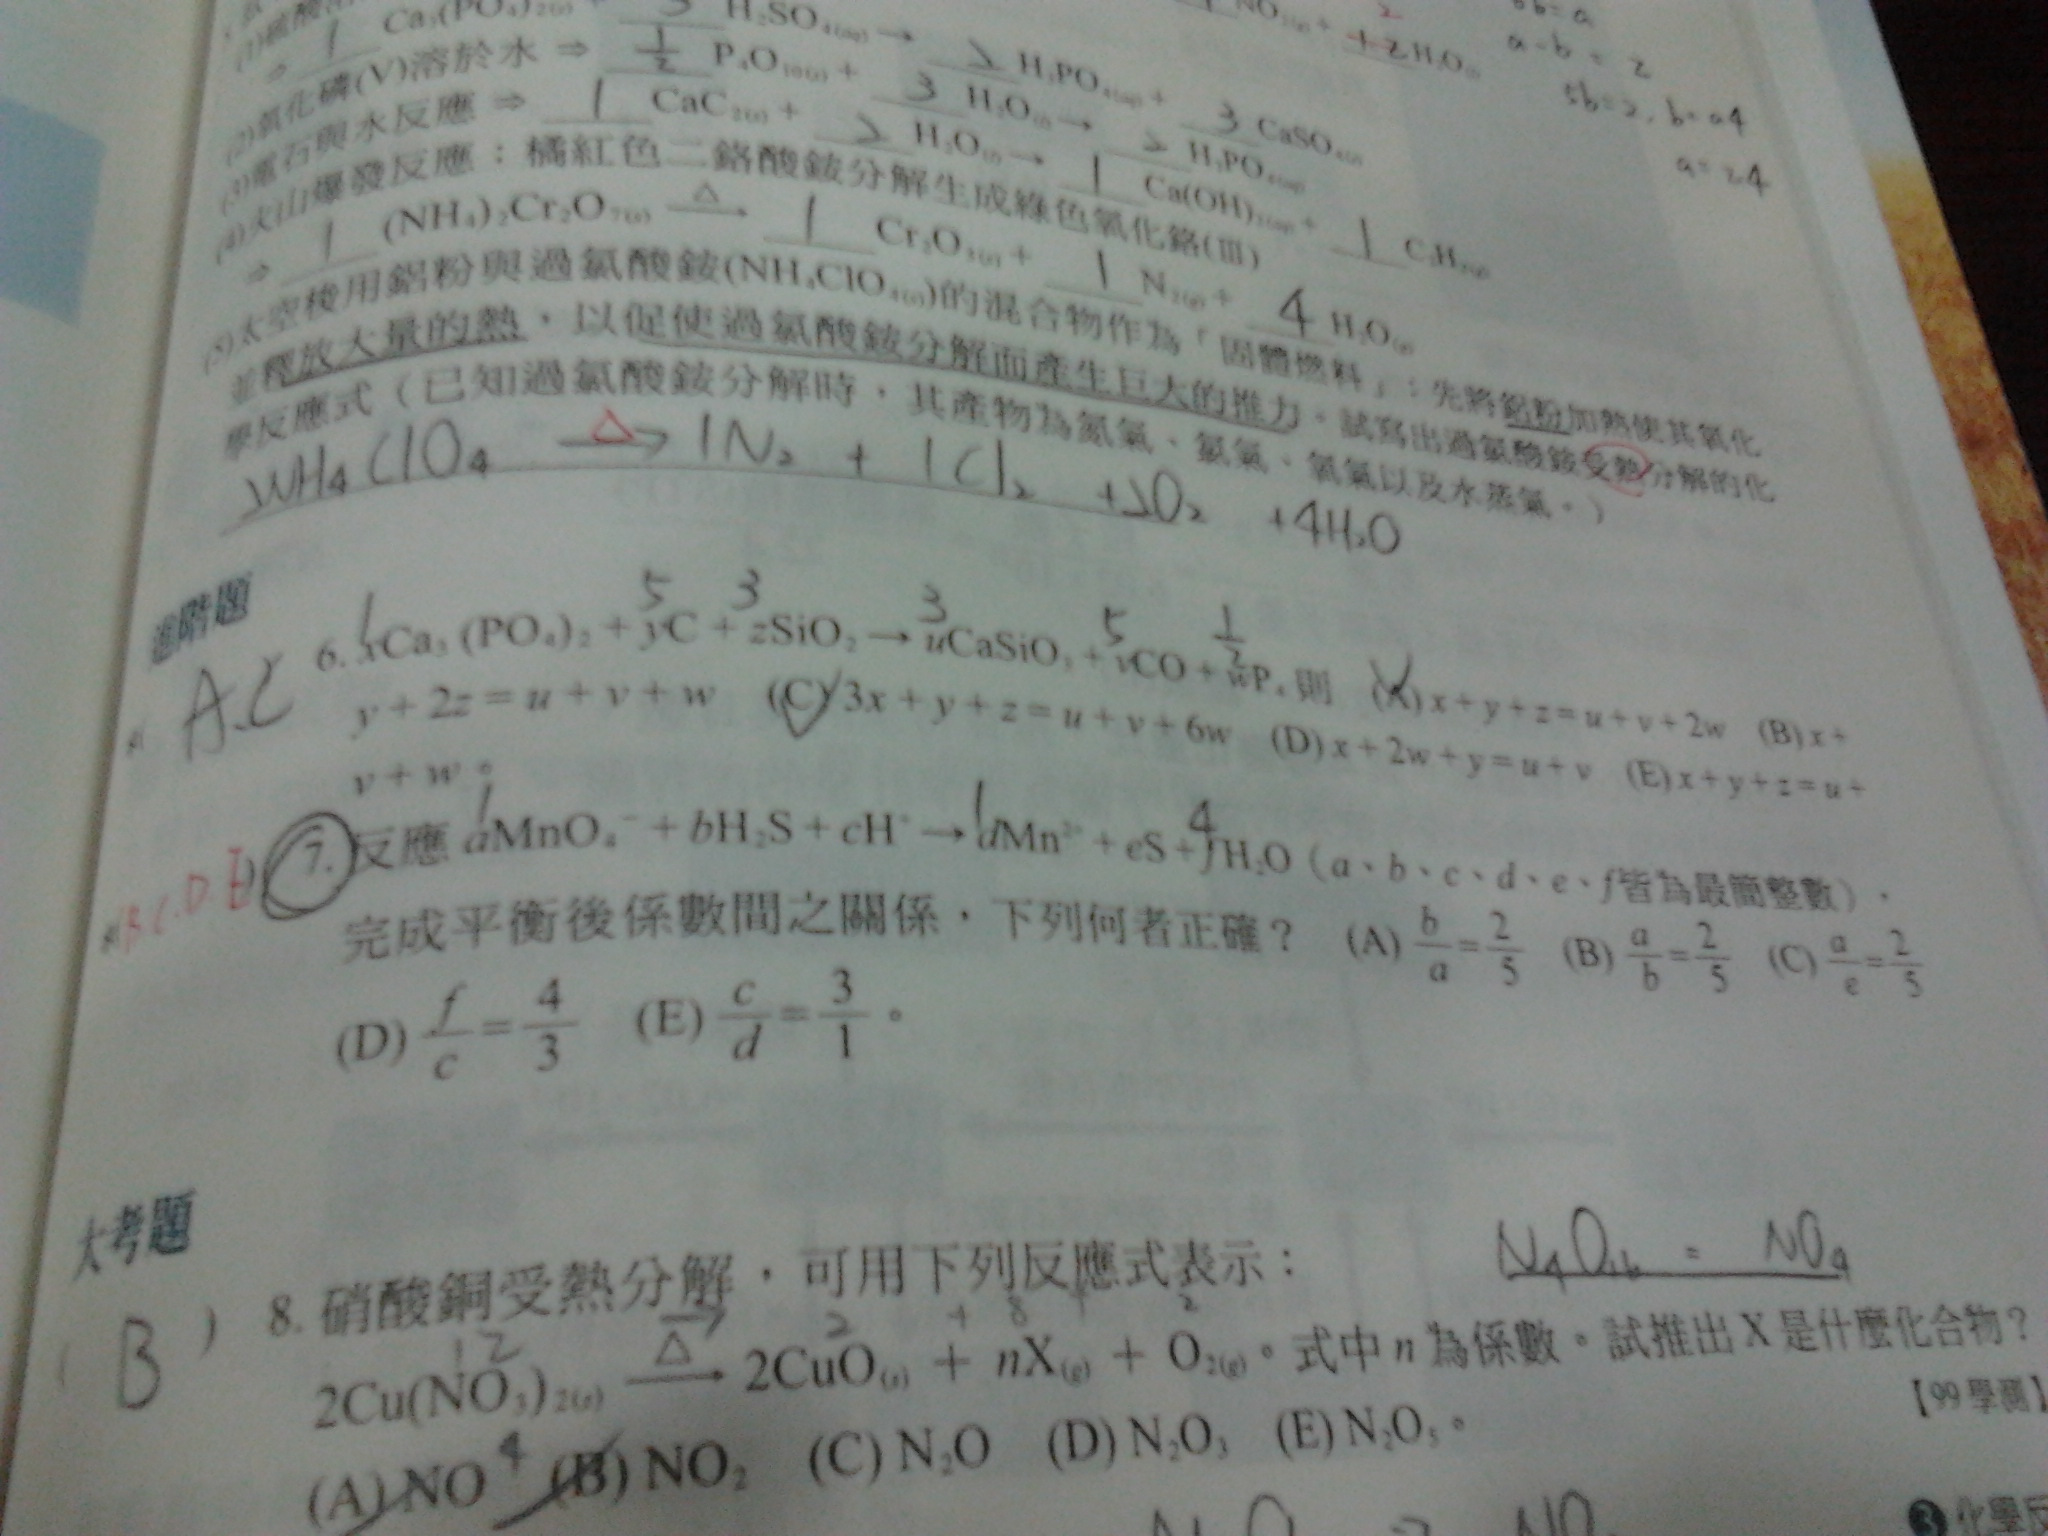 5b=a
a-b=2
5b=2, b=04
a=24
NO₂(g) + 2 H₂O(l)
⇒ 1 Ca₃(PO₄)₂(s) + 3 H₂SO₄(aq) → 2 H₃PO₄(aq) + 3 CaSO₄(s)
(2)氧化磷(V)溶於水 ⇒ 1/2 P₄O₁₀(s) + 3 H₂O(l) → 2 H₃PO₄(aq)
(3)電石與水反應 ⇒ 1 CaC₂(s) + 2 H₂O(l) → 1 Ca(OH)₂(aq) + 1 C₂H₂(g)
(4)火山爆發反應：橘紅色二鉻酸銨分解生成綠色氧化鉻(III)
⇒ 1 (NH₄)₂Cr₂O₇(s) —△→ 1 Cr₂O₃(s) + 1 N₂(g) + 4 H₂O(g)
(5)太空梭用鋁粉與過氯酸銨(NH₄ClO₄(s))的混合物作為「固體燃料」：先將鋁粉加熱使其氧化
並釋放大量的熱，以促使過氯酸銨分解而產生巨大的推力。試寫出過氯酸銨受熱分解的化
學反應式（已知過氯酸銨分解時，其產物為氮氣、氯氣、氧氣以及水蒸氣。）
2NH₄ClO₄ —△→ 1N₂ + 1Cl₂ + 2O₂ + 4H₂O
進階題
A.C 6. 1 xCa₃(PO₄)₂ + 5 yC + 3 zSiO₂ → 3 uCaSiO₃ + 5 vCO + 1/2 wP₄ 則 (A) x+y+z=u+v+2w (B) x+
y+2z=u+v+w (C) 3x+y+z=u+v+6w (D) x+2w+y=u+v (E) x+y+z=u+
v+w。
B.C.D.E) 7. 反應 1 aMnO₄⁻ + bH₂S + cH⁺ → 1 dMn²⁺ + eS + 4 fH₂O（a、b、c、d、e、f皆為最簡整數），
完成平衡後係數間之關係，下列何者正確？ (A) b/a = 2/5 (B) a/b = 2/5 (C) a/e = 2/5
(D) f/c = 4/3 (E) c/d = 3/1。
大考題
N₄O₁₆ = NO₄
( B ) 8. 硝酸銅受熱分解，可用下列反應式表示：
2Cu(NO₃)₂(s) —△→ 2CuO(s) + nX(g) + O₂(g)。式中 n 為係數。試推出 X 是什麼化合物？
【99學測】
(A) NO (B) NO₂ (C) N₂O (D) N₂O₃ (E) N₂O₅。
❸ 化學反